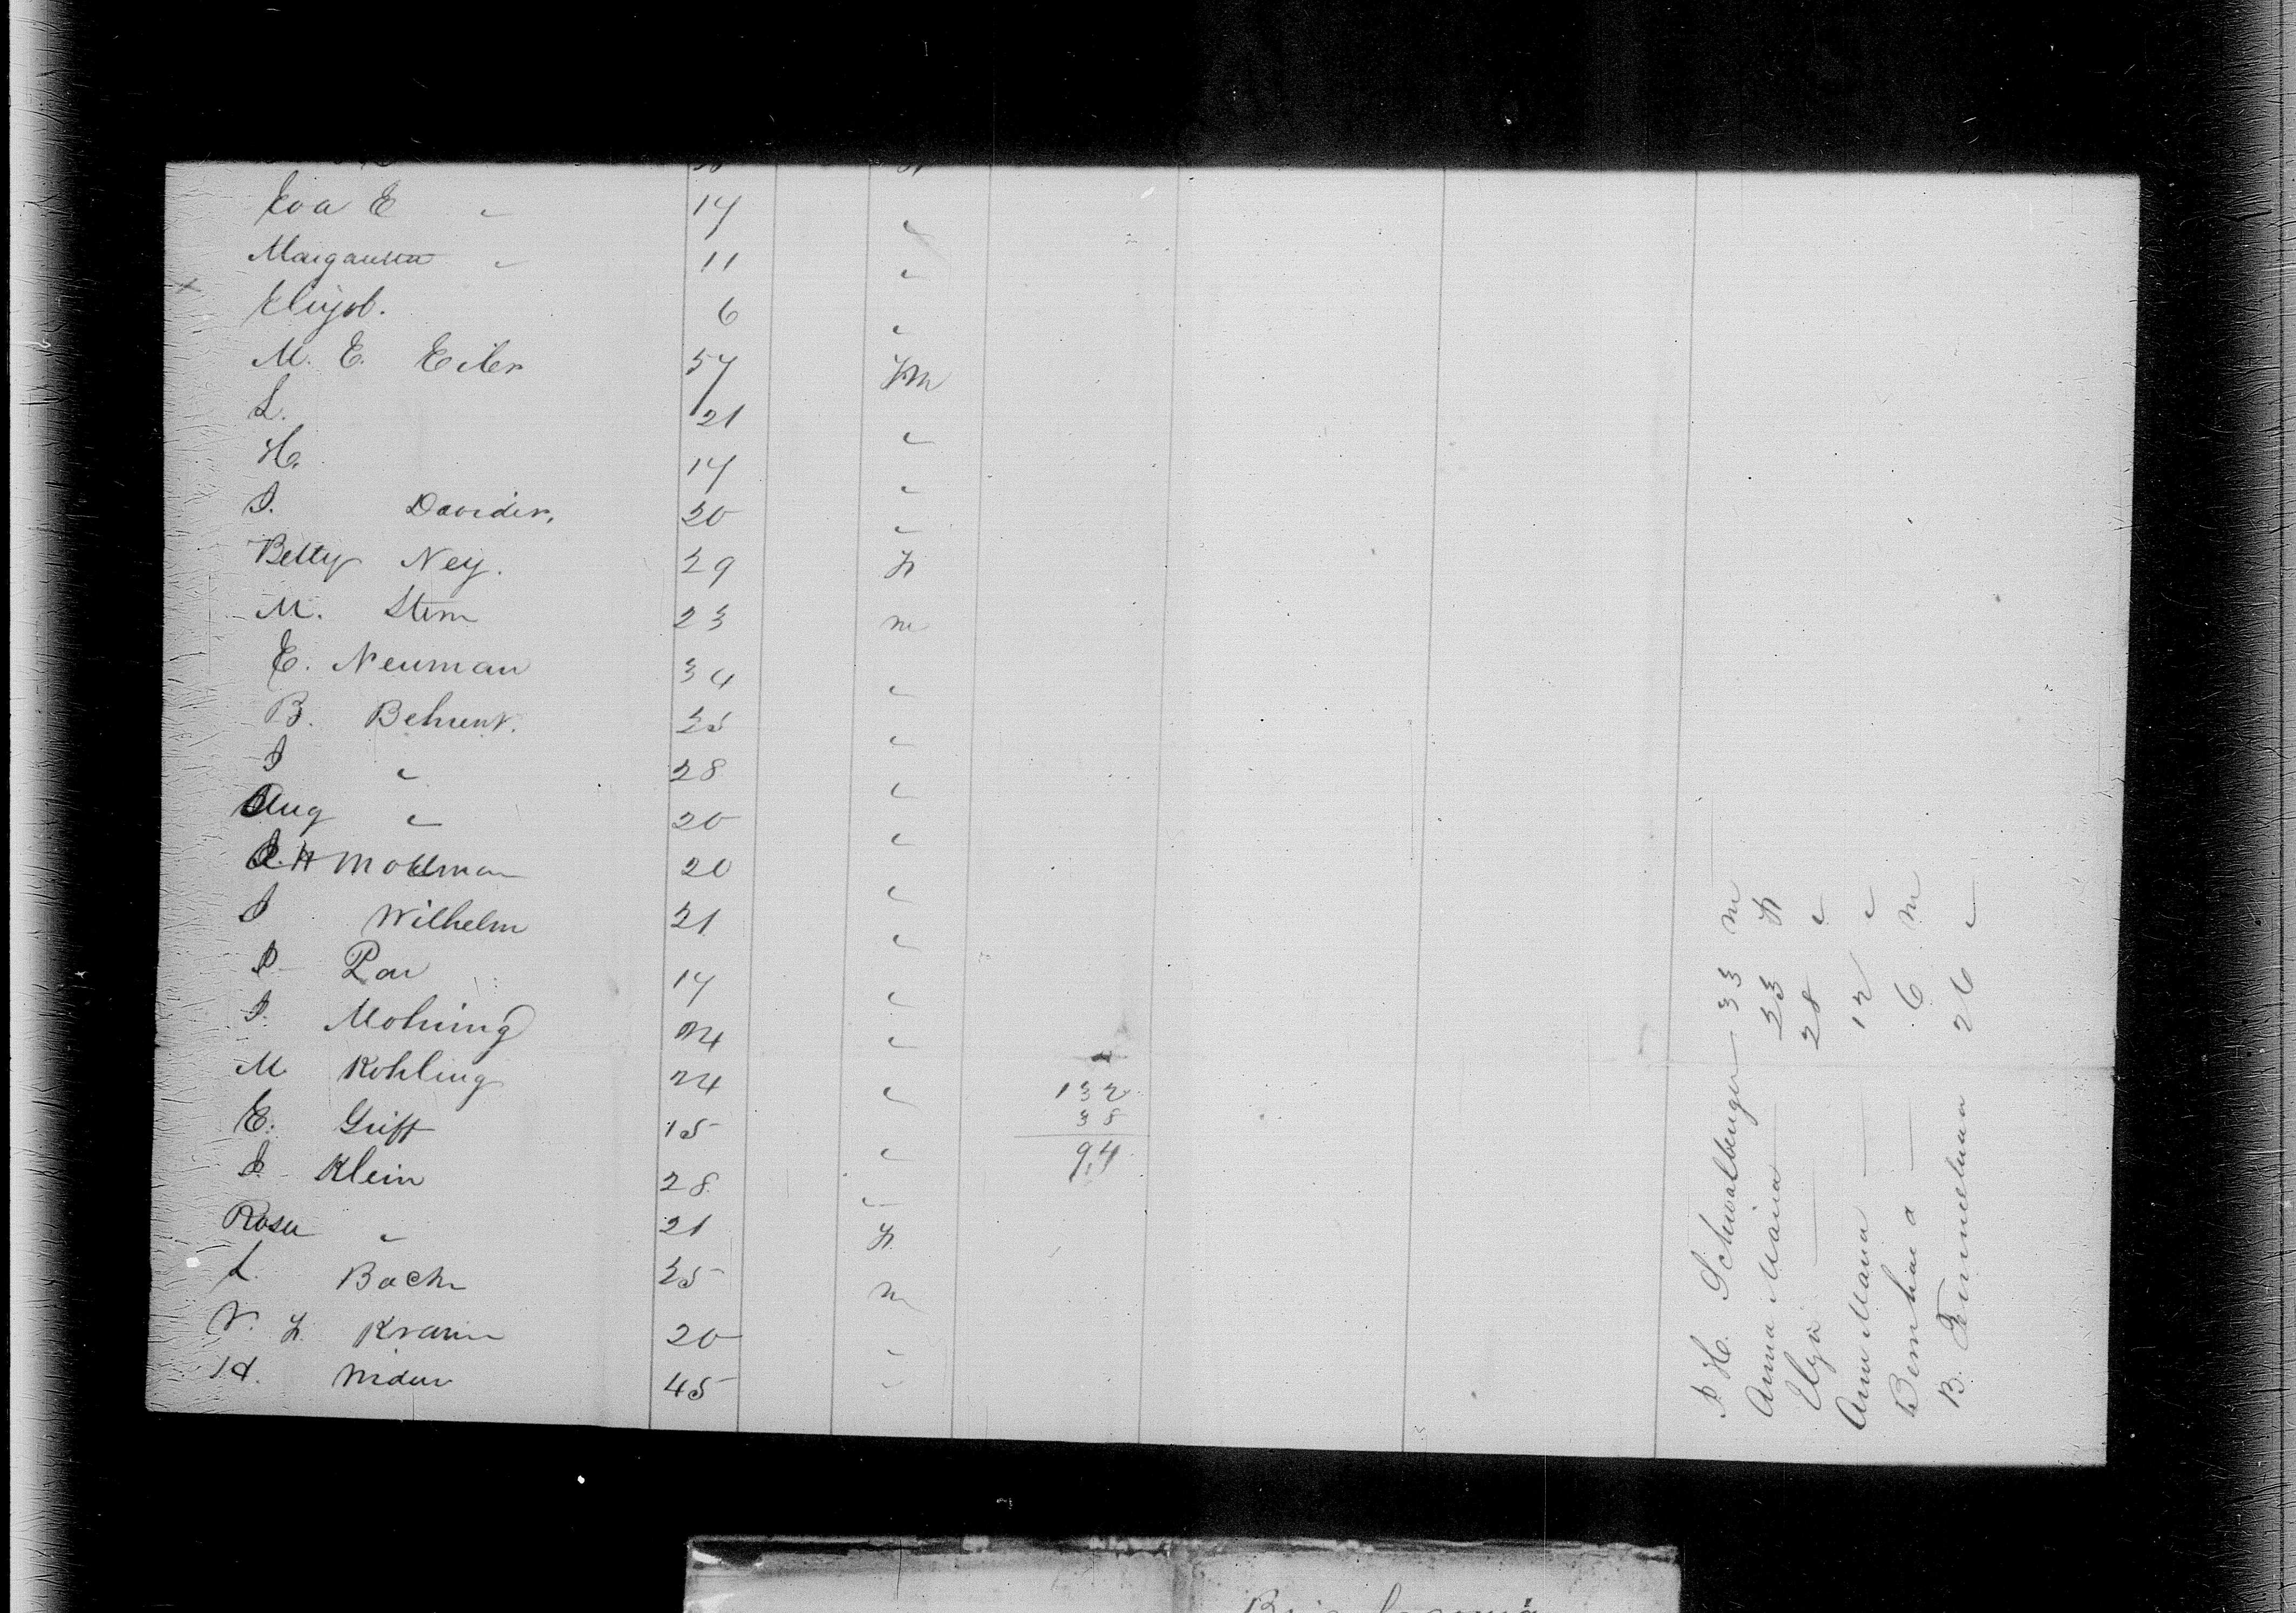 Eva E " 17 "
Margaretta " 11 "
6 "
M. E. Eiler 57 m
L. 21 "
H. 17 "
I. Davider. 20 "
Betty Ney. 29 F
M. Stern 23 m
E. Neuman 34 "
B. Behrent. 25 "
I " 28 "
Aug " 20 "
H Mollman 20 "
I Wilhelm 21 "
P 17 "
I. Mohring 24 "
M Kohling 24 "
E. Griff 15 "
I. Klein 28 "
Rosa " 21 F
L. Bach 25 m
N. F. Kramm 20 "
H. 45 "
132
38
94
I H. Schwalbenger 33 m
Anna Maria 23 F
28 "
Ann Maria 12 "
Bernhard 6 m
B. 26 "